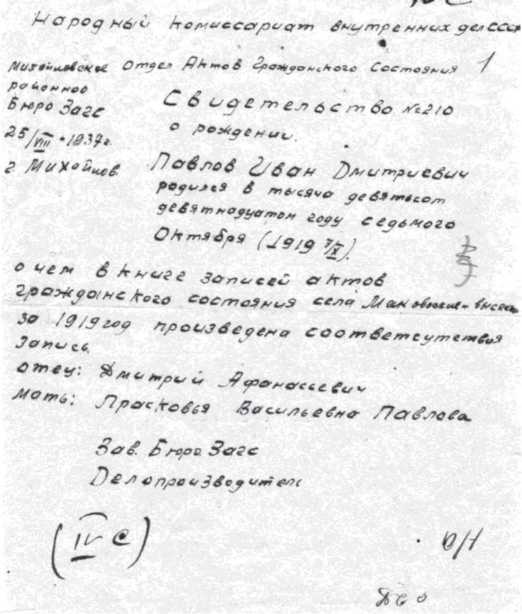 Народный Комиссариат внутренних дел ССР
Михайловское Отдел Актов Гражданского Состояния 1
районное
Бюро Загс
Свидетельство №210
о рождении.
25/VIII-1937г.
г Михайлов
Павлов Иван Дмитриевич
родился в тысяча девятьсот
девятнадцатом году седьмого
Октября (1919 7/X).
о чем в книге записей актов
гражданского состояния села
за 1919 год произведена соответсутствия
запись.
отец: Дмитрий Афанасьевич
мать: Прасковья Васильевна Павлова
Зав. Бюро Загс
Делопроизводитель
(IV с)